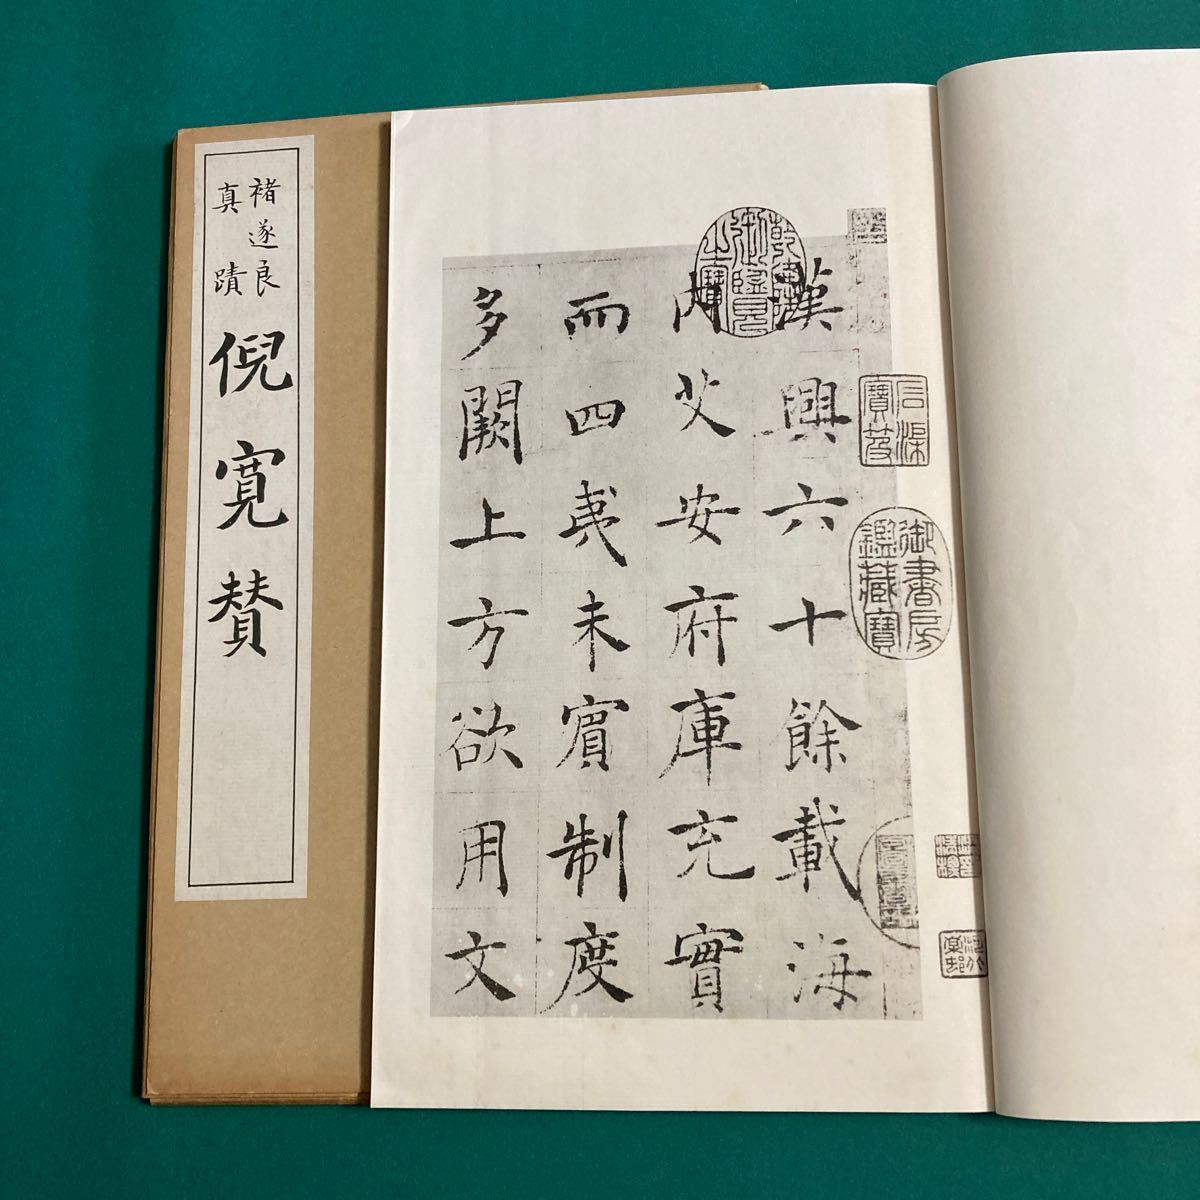 褚遂良
真蹟
倪寛賛
漢興六十餘載海
内艾安府庫充實
而四夷未賓制度
多闕上方欲用文
乾隆御覽之寶
御書房鑑藏寶